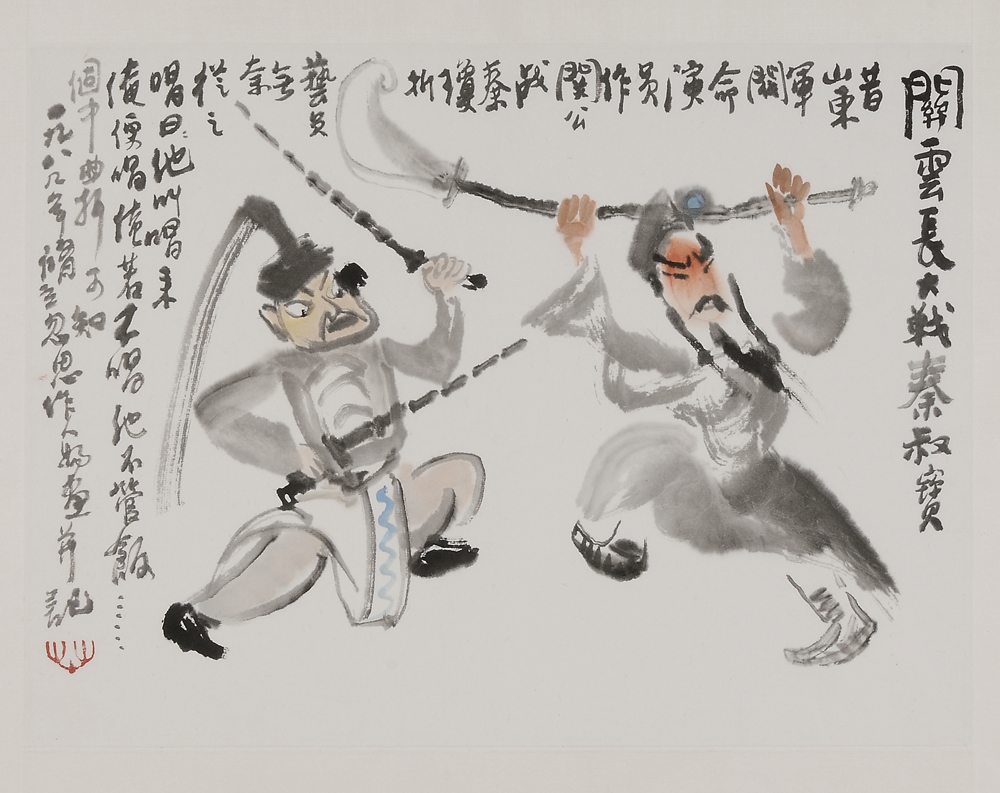 關雲長大戰秦叔寶
昔山東軍閥命演员作關公战秦瓊折
藝员
無奈
從之
唱曰:他叫唱来
俺便唱俺若不唱他不管飯……
個中曲折可知
一九八九年忽思作人物畫并記